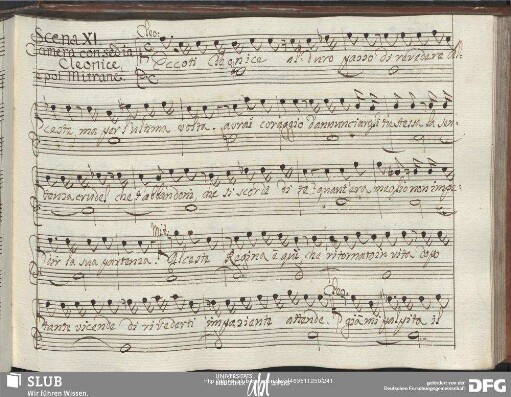 Scena XI
Camera con sedia
Cleonice,
e poi Mitrane.
Cleo:
Eccoti Cleonice al duro passo di rivedere Al:
ceste ma per l'ultima volta. avrai coraggio d'annunciargli tu stessa la sen:
tenza crudel che t'abbandoni, che si scordi di te! quant'era meglio non impe:
dir la sua partenza!
Mit:
Alceste Regina è qui, che ritornato in vita dopo
tante vicende di rivederti impaziente attende.
Cleo:
già mi palpita il
SLUB
Wir führen Wissen.
gefördert von der
Deutschen Forschungsgemeinschaft
DFG